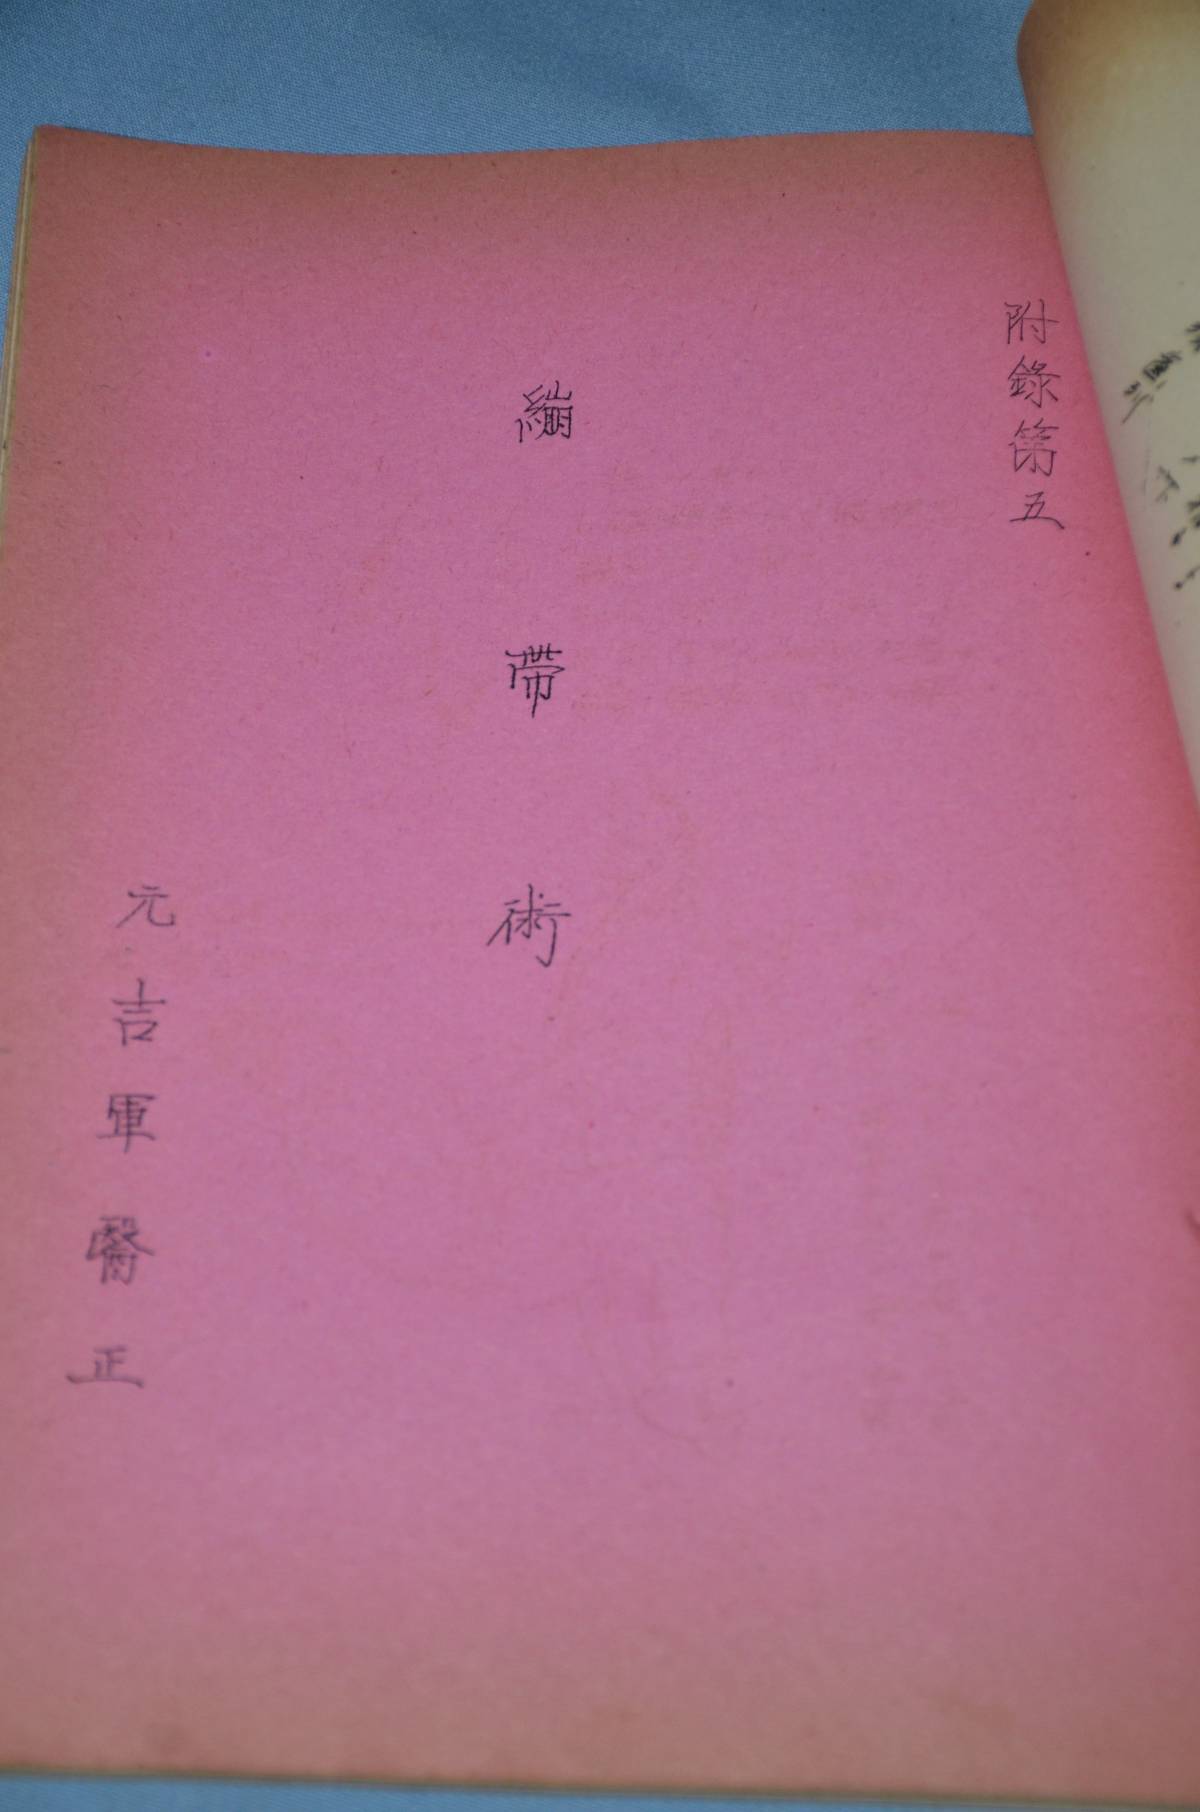 附錄第五
繃帶術
元吉軍醫正